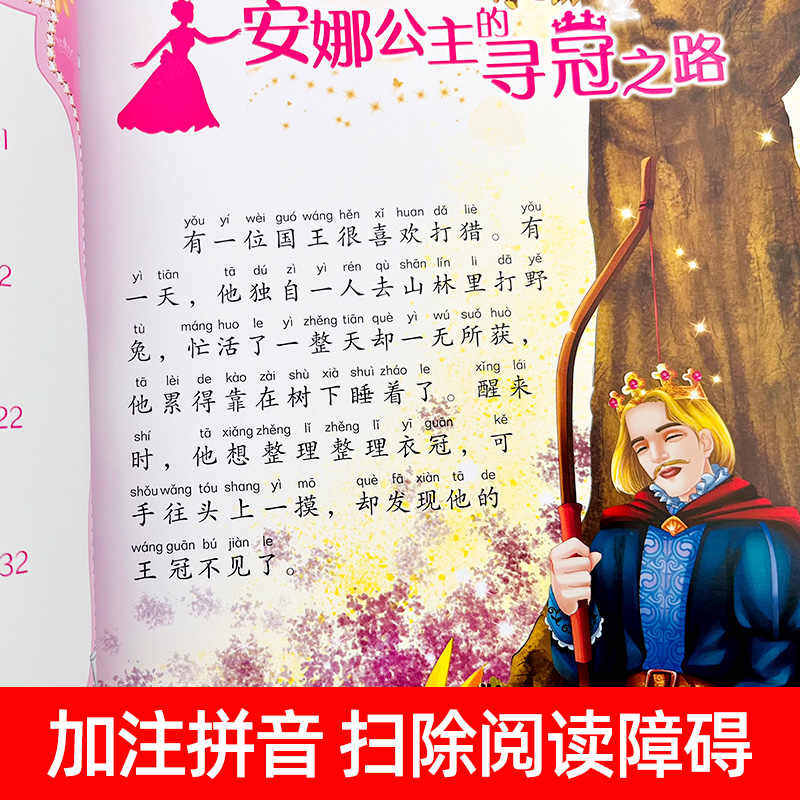 安娜公主的寻冠之路
1
2
22
32
yǒu yí wèi guó wáng hěn xǐ huan dǎ liè yǒu
有一位国王很喜欢打猎。有
yì tiān tā dú zì yì rén qù shān lín li dǎ yě
一天，他独自一人去山林里打野
tù máng huo le yì zhěng tiān què yì wú suǒ huò
兔，忙活了一整天却一无所获，
tā lèi de kào zài shù xià shuì zháo le xǐng lái
他累得靠在树下睡着了。醒来
shí tā xiǎng zhěng lǐ zhěng lǐ yī guān kě
时，他想整理整理衣冠，可
shǒu wǎng tóu shang yì mō què fā xiàn tā de
手往头上一摸，却发现他的
wáng guān bú jiàn le
王冠不见了。
加注拼音 扫除阅读障碍